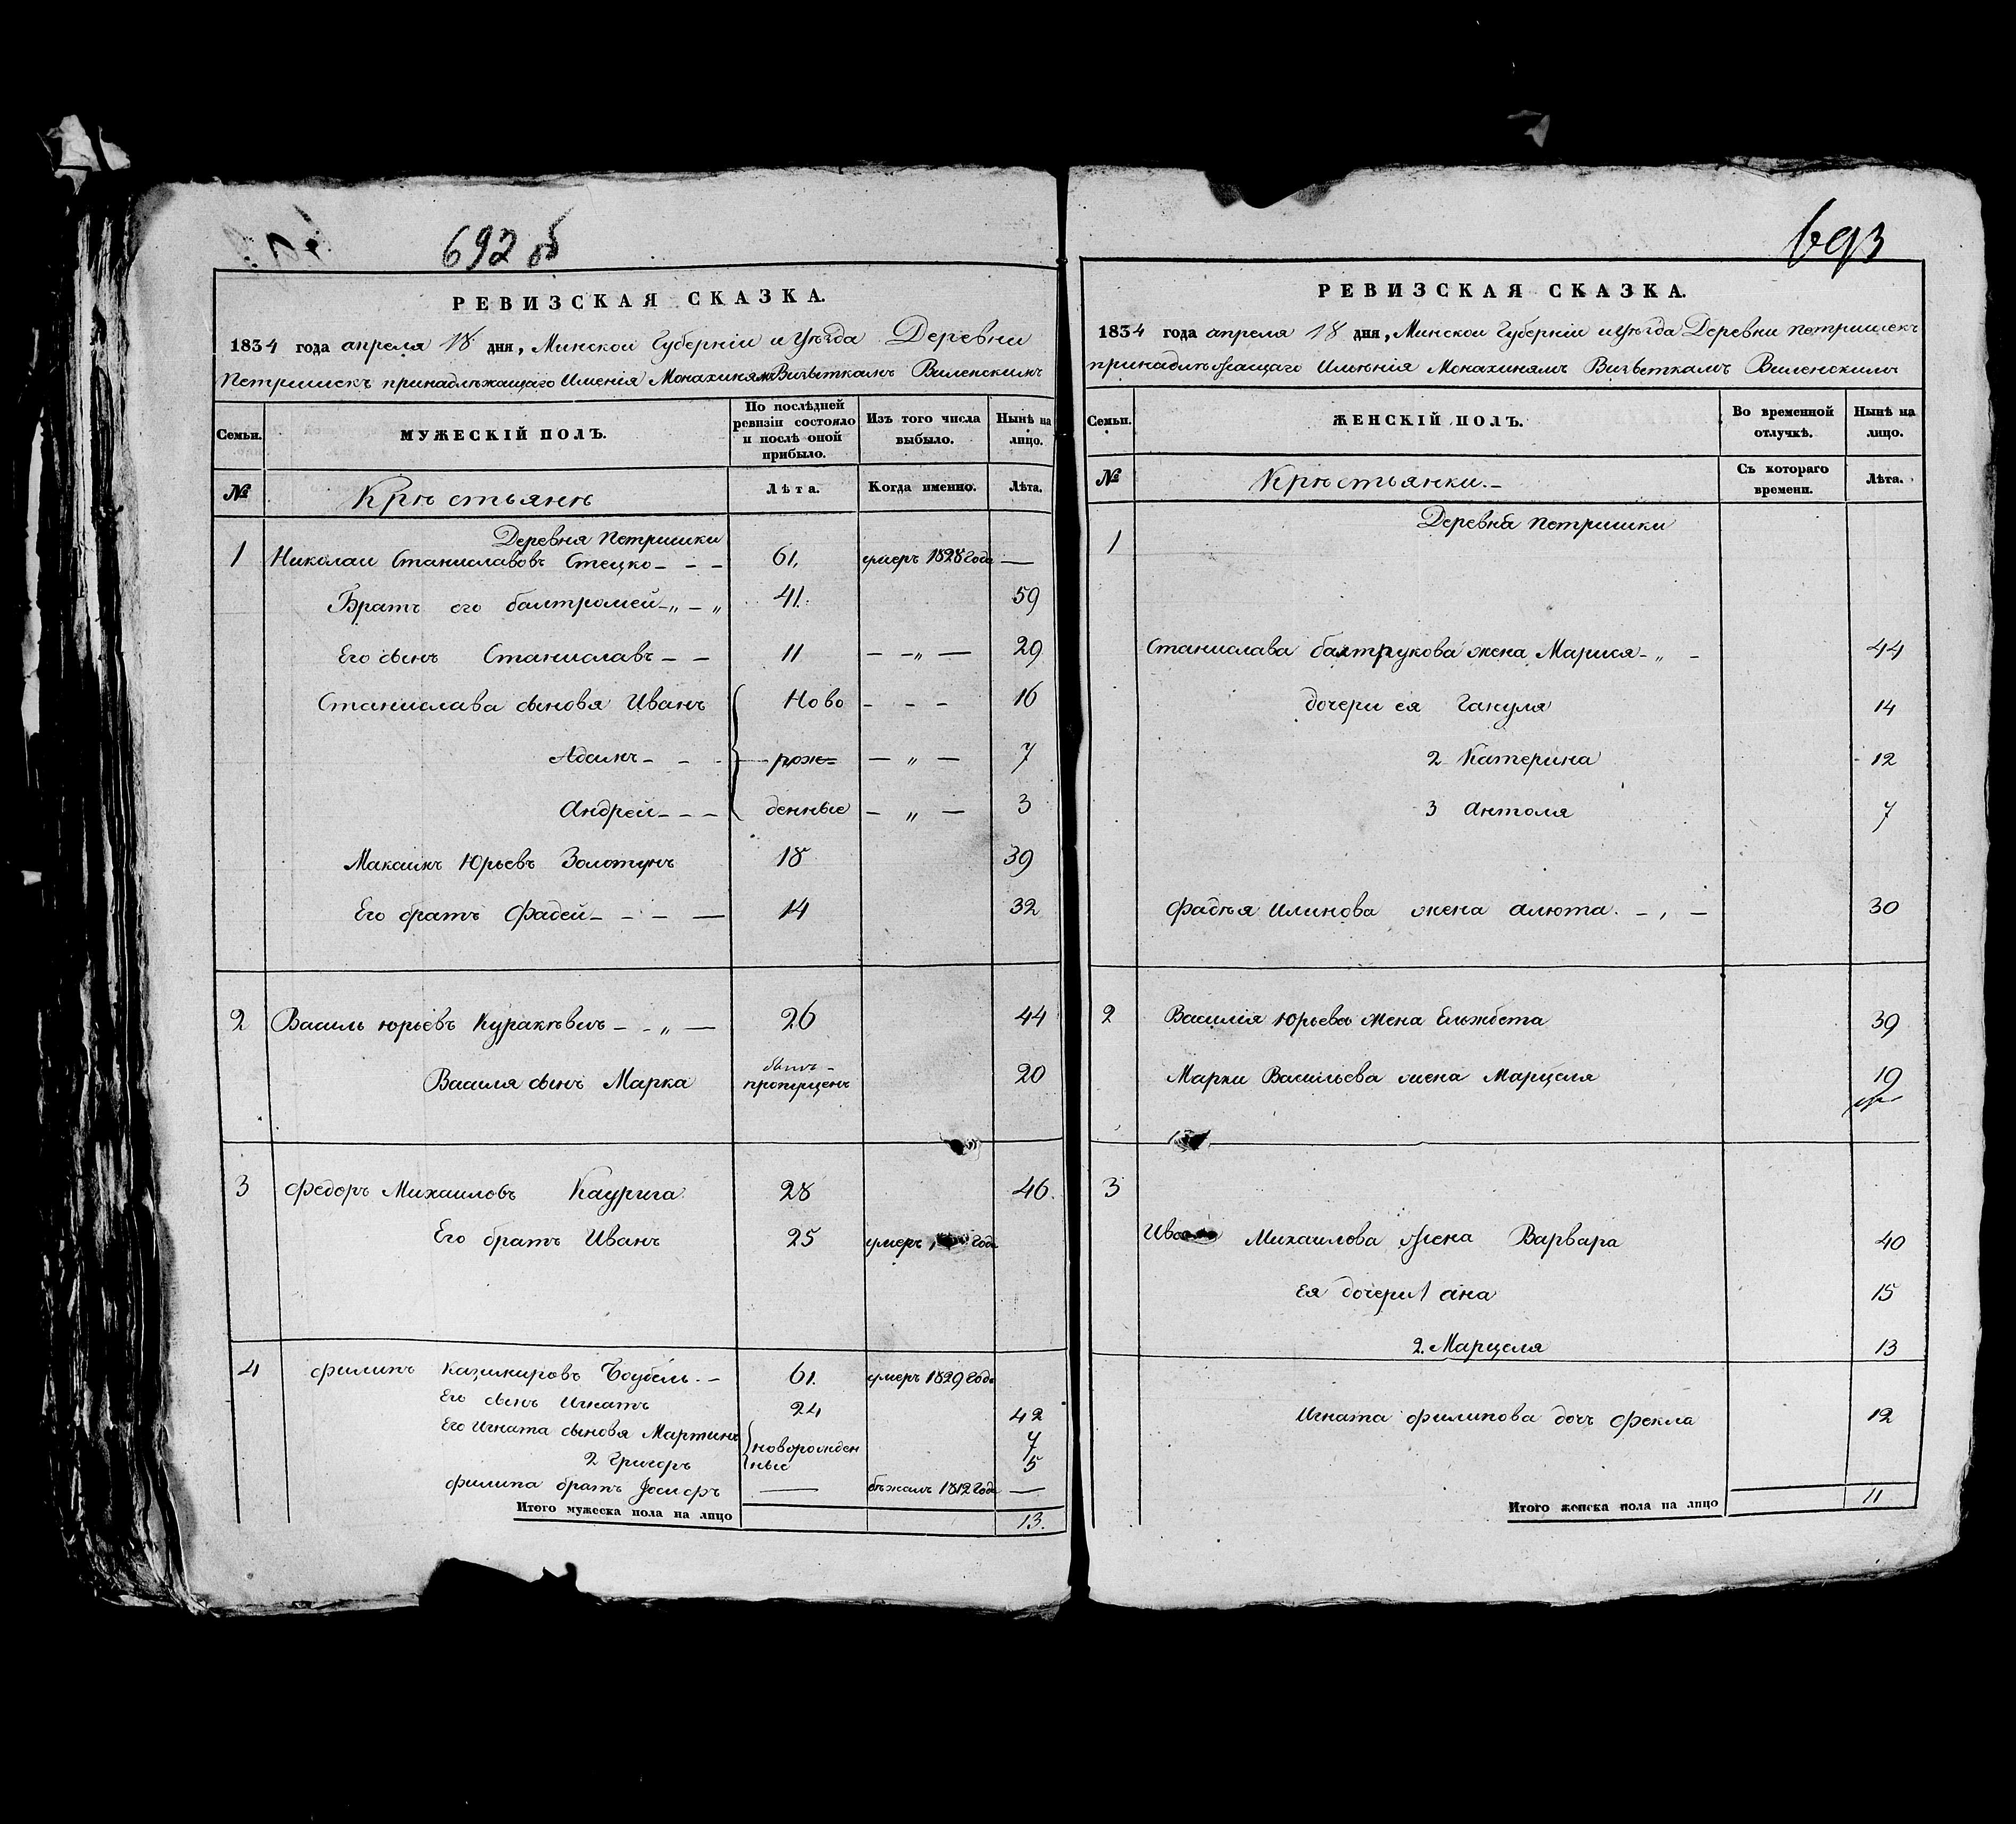 692 об
РЕВИЗСКАЯ СКАЗКА.
1834 года апреля 18 дня, Минской Губерніи и Уѣзда Деревни
Петришекъ принадлѣжащаго Имѣнія Монахинямъ Визыткамъ Виленскимъ
Семьи. МУЖЕСКІЙ ПОЛЪ. По послѣдней ревизіи состояло и послѣ оной прибыло. Изъ того числа выбыло. Нынѣ на лицо.
№ Крѣстьянѣ Лѣта. Когда именно. Лѣта.
Деревня Петришки
1 Николаи Станиславовъ Стецко - - - 61, умеръ 1828 Года —
Братъ его балтромей - „ - „ 41. 59
Его сынъ Станиславъ - - 11 — - „ — 29
Станислава сыновя Иванъ Ново - - - 16
Адамъ - - - рож= — „ — 7
Андрей - - - денные — „ — 3
Максимъ Юрьевъ Золотунъ 18 39
Его братъ Фадей - - - — 14 32
2 Василь юрьевъ Куракѣвичъ - - „ — 26 44
Василя сынъ Марка былъ - пропущенъ 20
3 Федоръ Михаиловъ Каурига 28 46.
Его братъ Иванъ 25 умеръ, Года
4 Филипъ Казимировъ 61. умеръ 1829 Года
Его сынъ Игнатъ 24 42
Его Игната сыновя Мартинъ новорожден 7
2 Григоръ ные 5
Филипа братъ Іосифъ — бѣжалъ 1812 Года —
Итого мужеска пола на лицо 13.
693
РЕВИЗСКАЯ СКАЗКА.
1834 года апреля 18 дня, Минской Губерніи и Уѣзда Деревни Петришекъ
принадлѣжащаго Имѣнія Монахинямъ Визыткамъ Виленскимъ
Семьи. ЖЕНСКІЙ ПОЛЪ. Во временной отлучкѣ. Нынѣ на лицо.
№ Крѣстьянки. - Съ котораго времени. Лѣта.
Деревня Петришки
1
Станислава балтрукова жена Марися - „ - 44
дочери ея Гануля 14
2 Катерина 12
3 Антоля 7
Фадѣя Илинова жена Алюта. - , - 30
2 Василія Юрьева жена Ельжбета 39
Марки Васильева жена Марцеля 19
3
Михаилова жена Варвара 40
Ея дочери 1 Ана 15
2. Марцеля 13
Игната Филипова дочъ Фекла 12
Итого женска пола на лицо 11